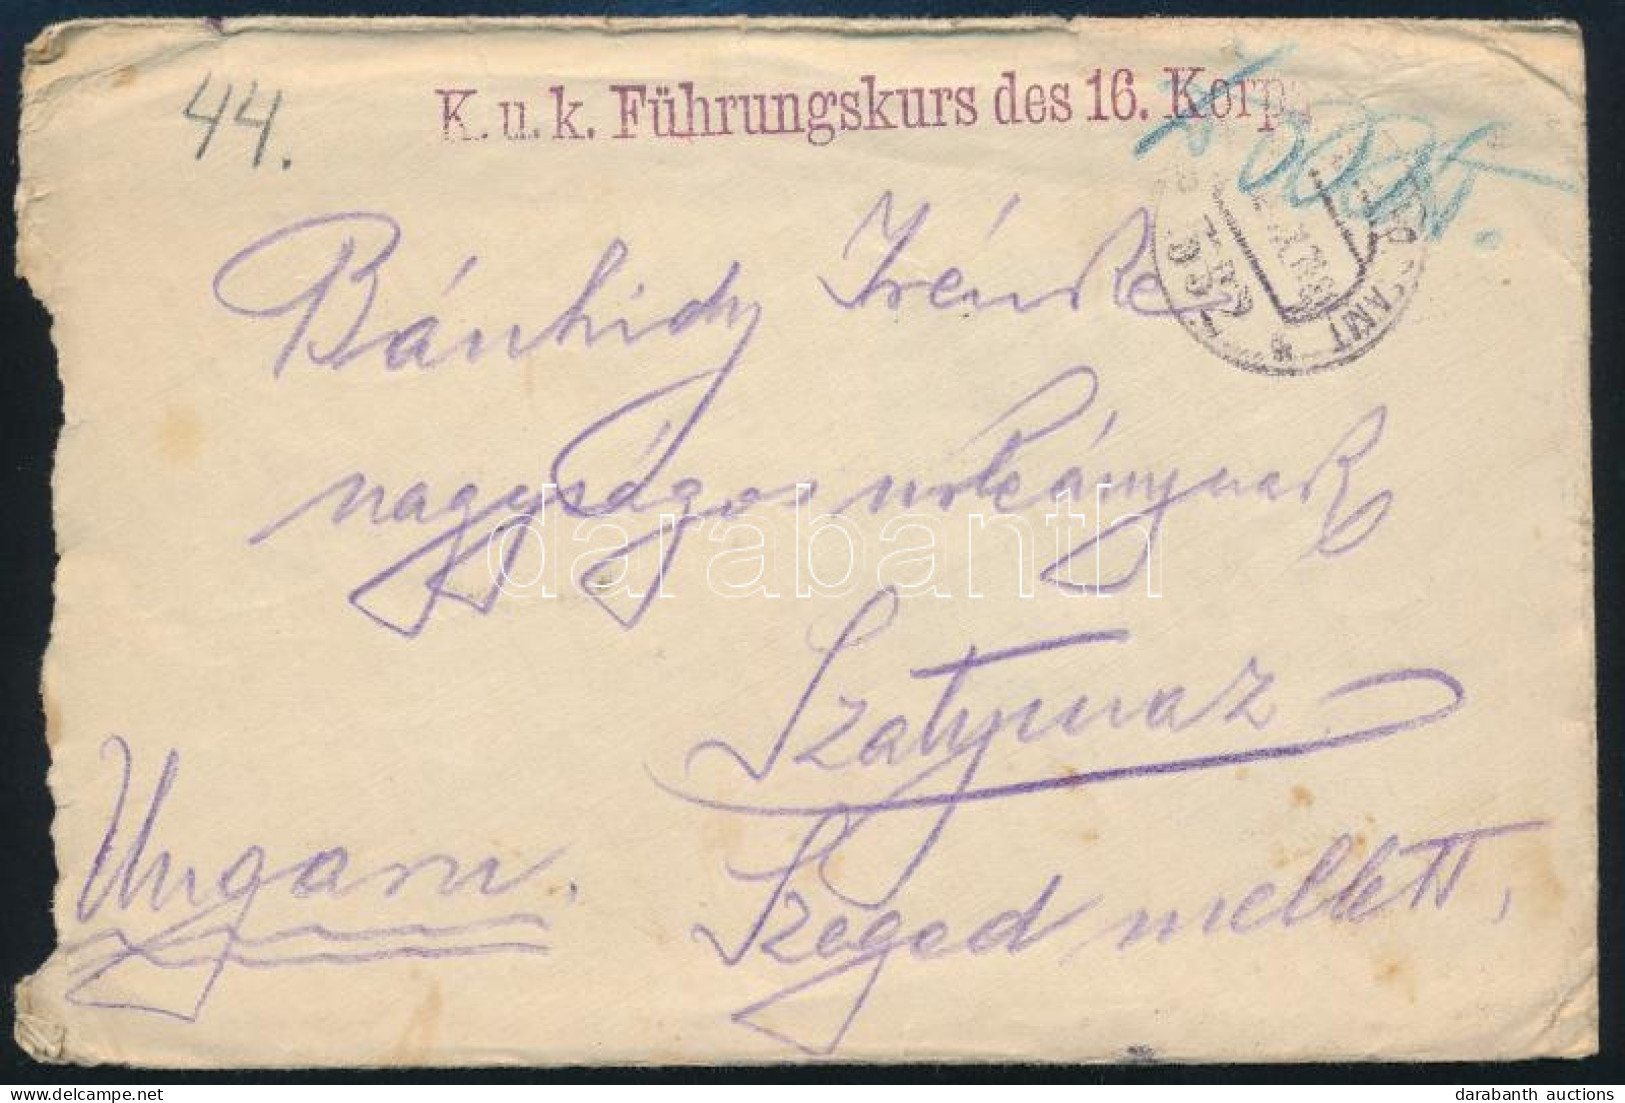 44.
K. u. k. Führungskurs des 16. Korps
Bánhidy Irénke
nagyságos urleánynak
Szatymaz
Szeged mellett,
Ungarn.
darabanth
darabanth auctions